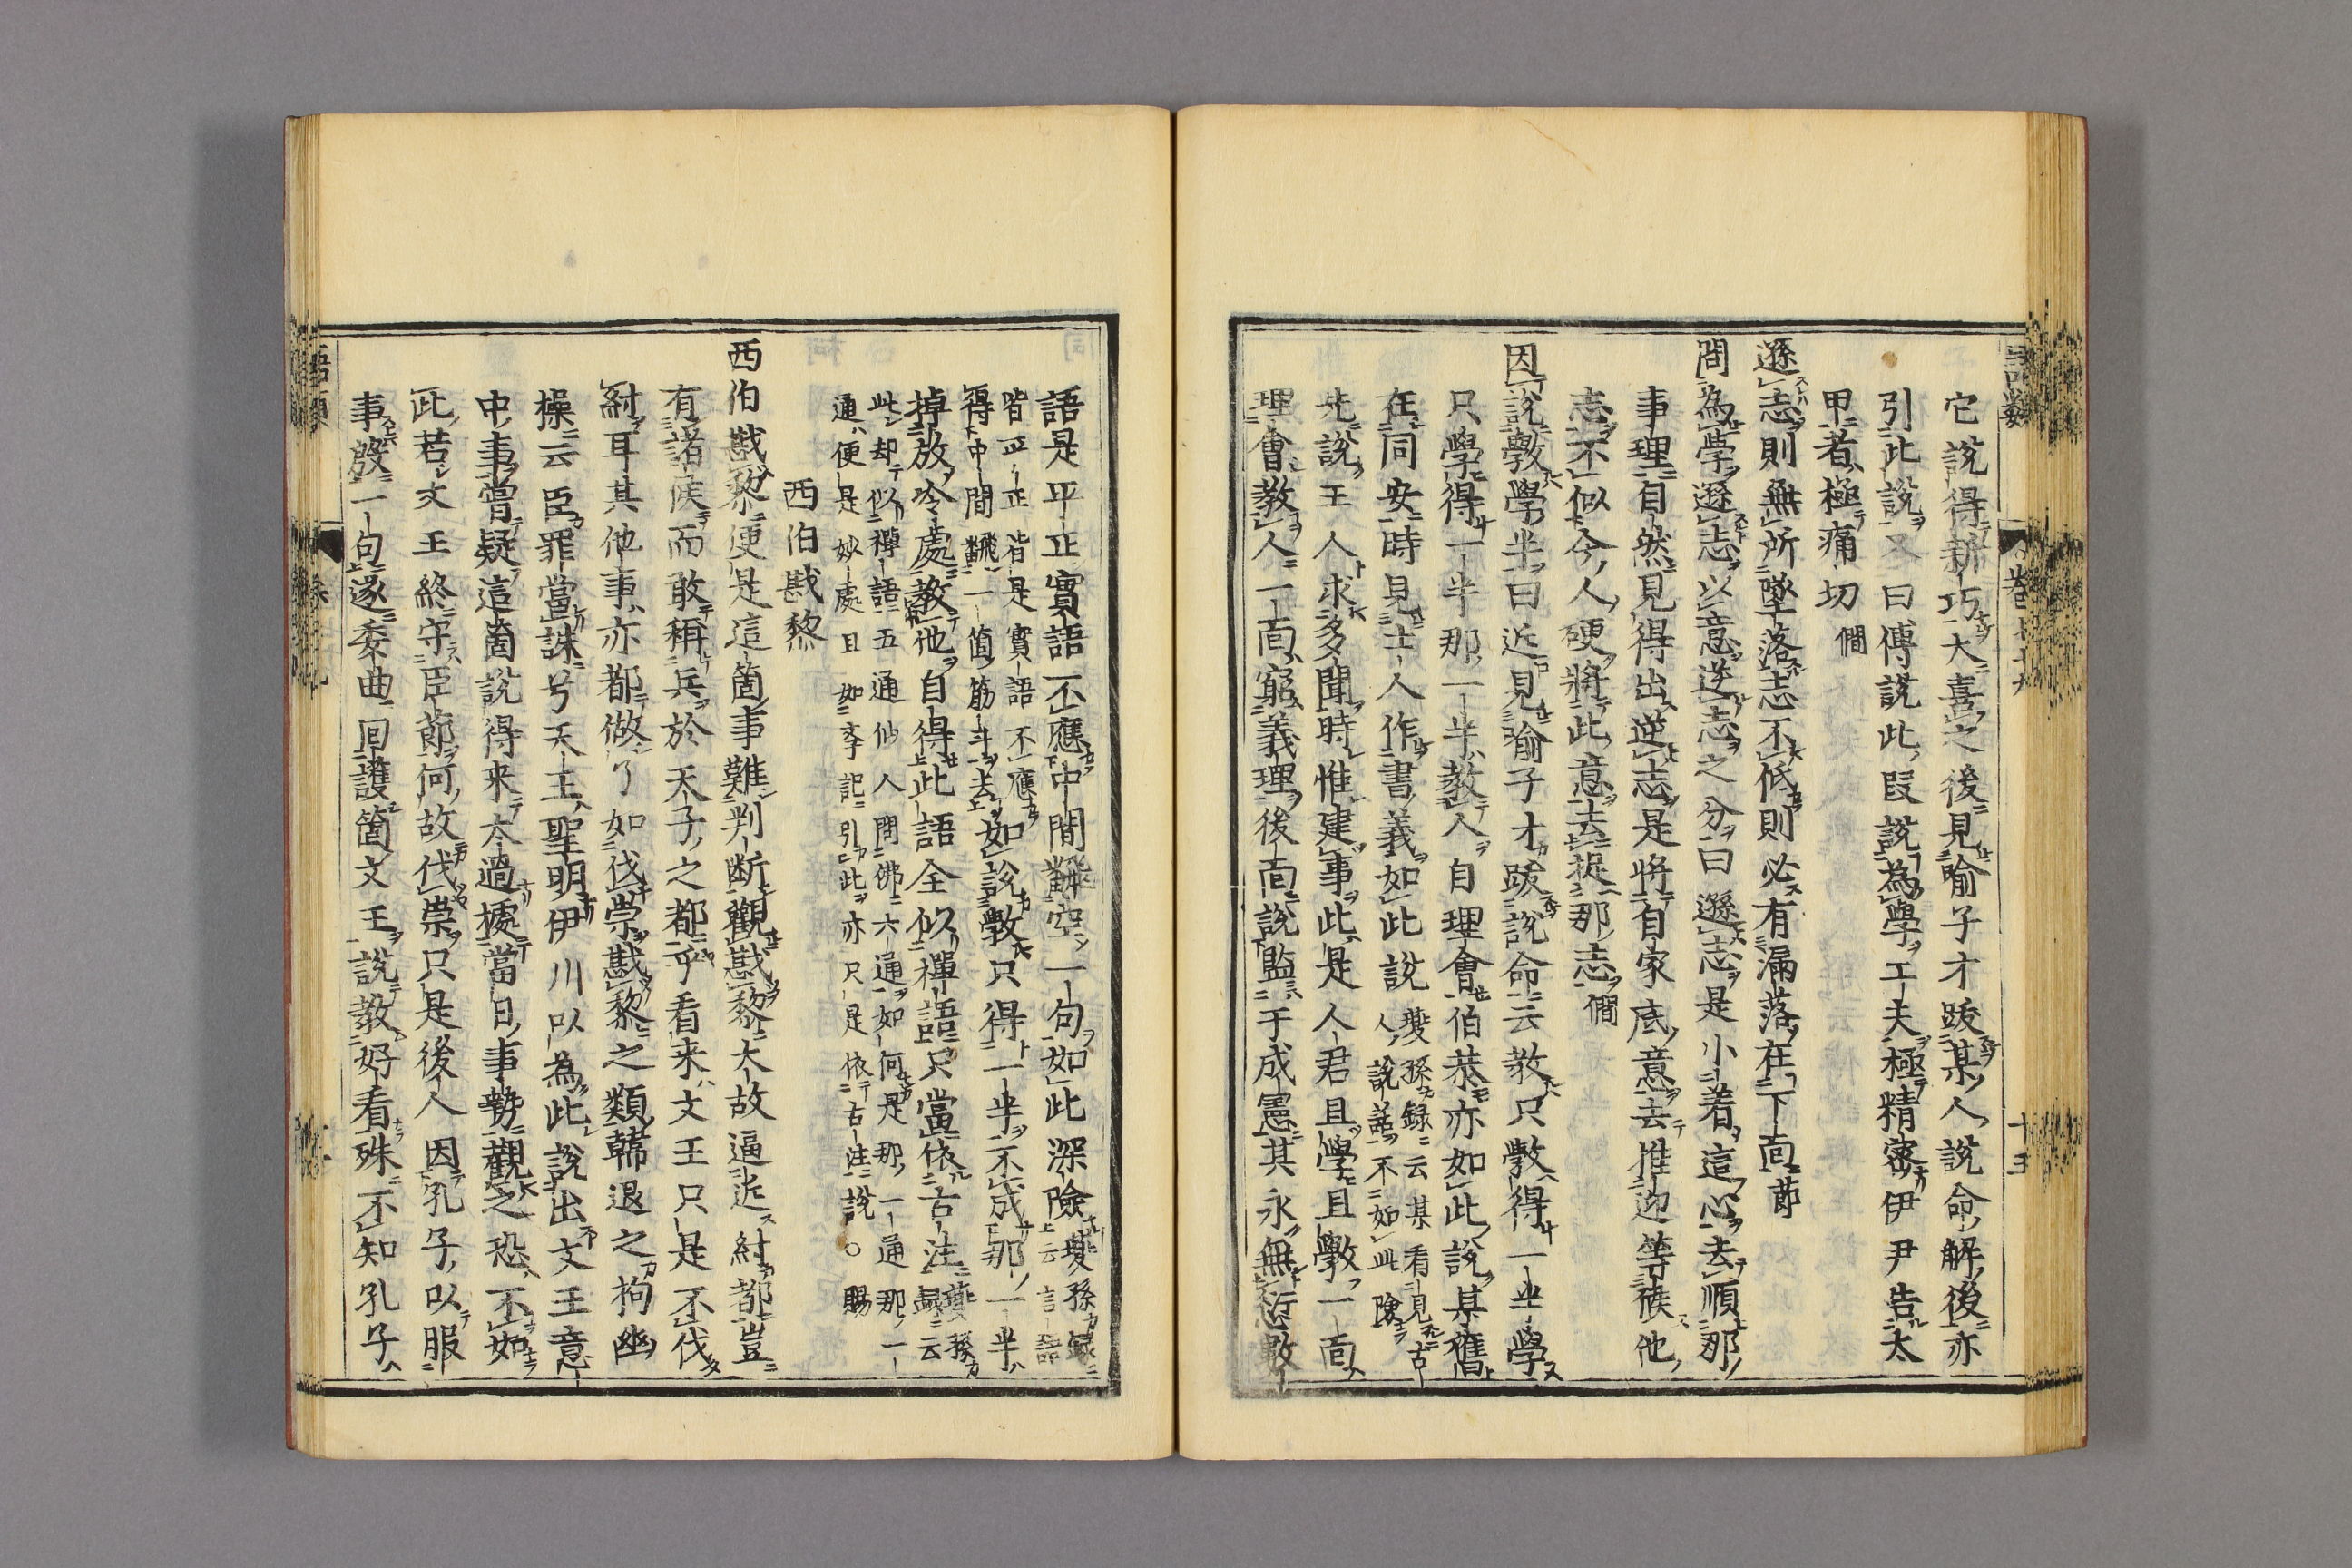 它說得新巧大喜之後見喻子才跋某人說命解後亦
引此說又曰傅說此段說為學工夫極精密伊尹告太
甲者極痛切 僩
遜志則無所墜落志不低則必有漏落在下面 節
問為學遜志以意逆志之分曰遜志是小着這心去順那
事理自然見得出逆志是將自家底意去推迎等候他
志不似今人硬將此意去捉那志 僩
因說斆學半曰近見喻子才跋說命云教只斆得一半學
只學得一半那一半教人自理會伯恭亦如此說某舊
在同安時見士人作書義如此說 夔孫録云某看見古人說話不如此險
先說王人求多聞時惟建事此是人君且學且斆一面
理會教人一面窮義理後面說監于成憲其永無愆數
語是平正實語不應中間翻空一句如此深險 夔孫録云言語
皆正正皆是實語不應
得中間翻一箇筋斗去 如說斆只得一半不成那一半
掉放冷處教他自得此語全似禪語只當依古注 夔孫録云
此却似禪語五通仙人問佛六通如何是那一通那一
通便是妙處且如李記引此亦只是依古注說○賜
西伯戡黎
西伯戡黎便是這箇事難判断觀戡黎大故逼近紂都豈
有諸侯而敢稱兵於天子之都乎看来文王只是不伐
紂耳其他事亦都做了如伐崇戡黎之類韓退之拘幽
操云臣罪當誅兮天王聖明伊川以為此說出文王意
中事嘗疑這箇說得来太過據當日事勢觀之恐不如
此若文王終守臣節何故伐崇只是後人因孔子以服
事殷一句遂委曲回護箇文王說教好看殊不知孔子